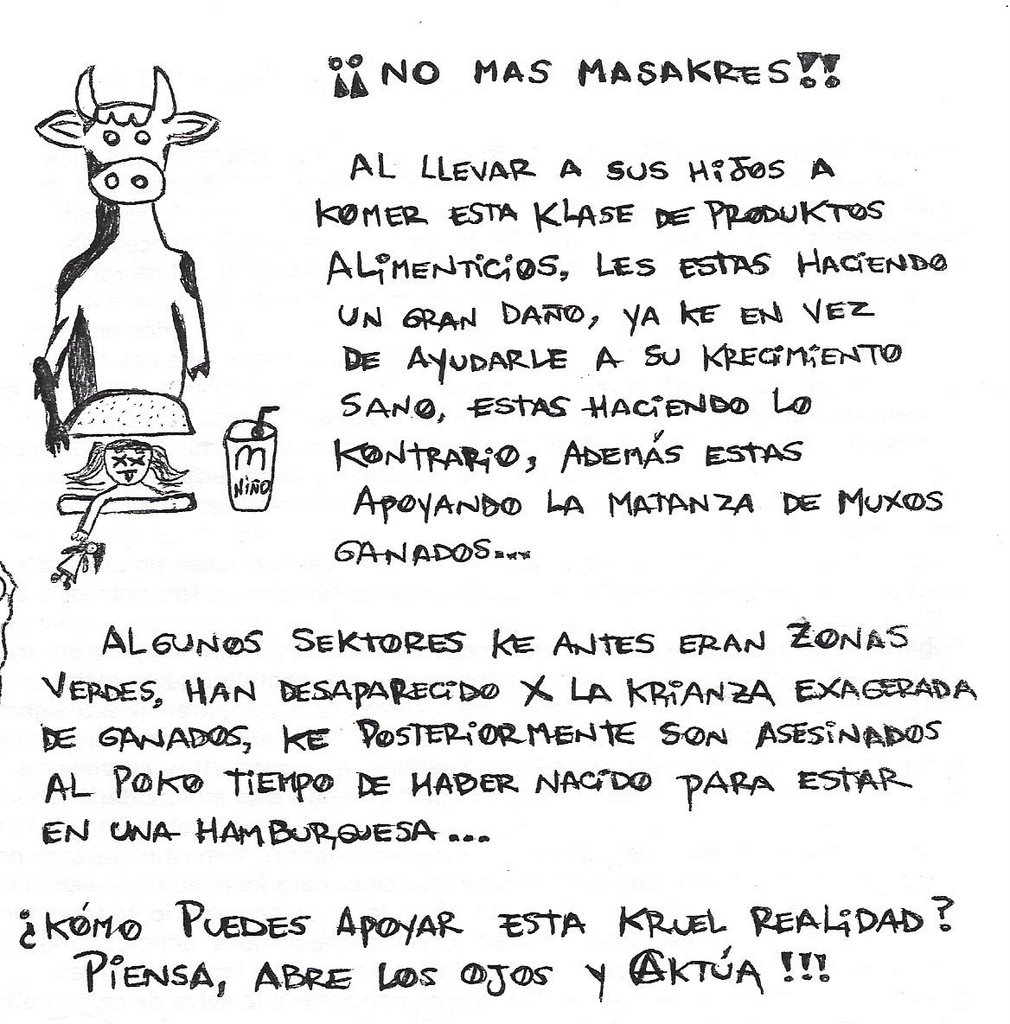 ¡¡NO MAS MASAKRES!!
AL LLEVAR A SUS HIJOS A
KOMER ESTA KLASE DE PRODUKTOS
ALIMENTICIOS, LES ESTAS HACIENDO
UN GRAN DAÑO, YA KE EN VEZ
DE AYUDARLE A SU KRECIMIENTO
SANO, ESTAS HACIENDO LO
KONTRARIO, ADEMÁS ESTAS
APOYANDO LA MATANZA DE MUXOS
GANADOS...
M
NIÑO
ALGUNOS SEKTORES KE ANTES ERAN ZONAS
VERDES, HAN DESAPARECIDO X LA KRIANZA EXAGERADA
DE GANADOS, KE POSTERIORMENTE SON ASESINADOS
AL POKO TIEMPO DE HABER NACIDO PARA ESTAR
EN UNA HAMBURGUESA...
¿KÓMO PUEDES APOYAR ESTA KRUEL REALIDAD?
PIENSA, ABRE LOS OJOS Y AKTÚA!!!